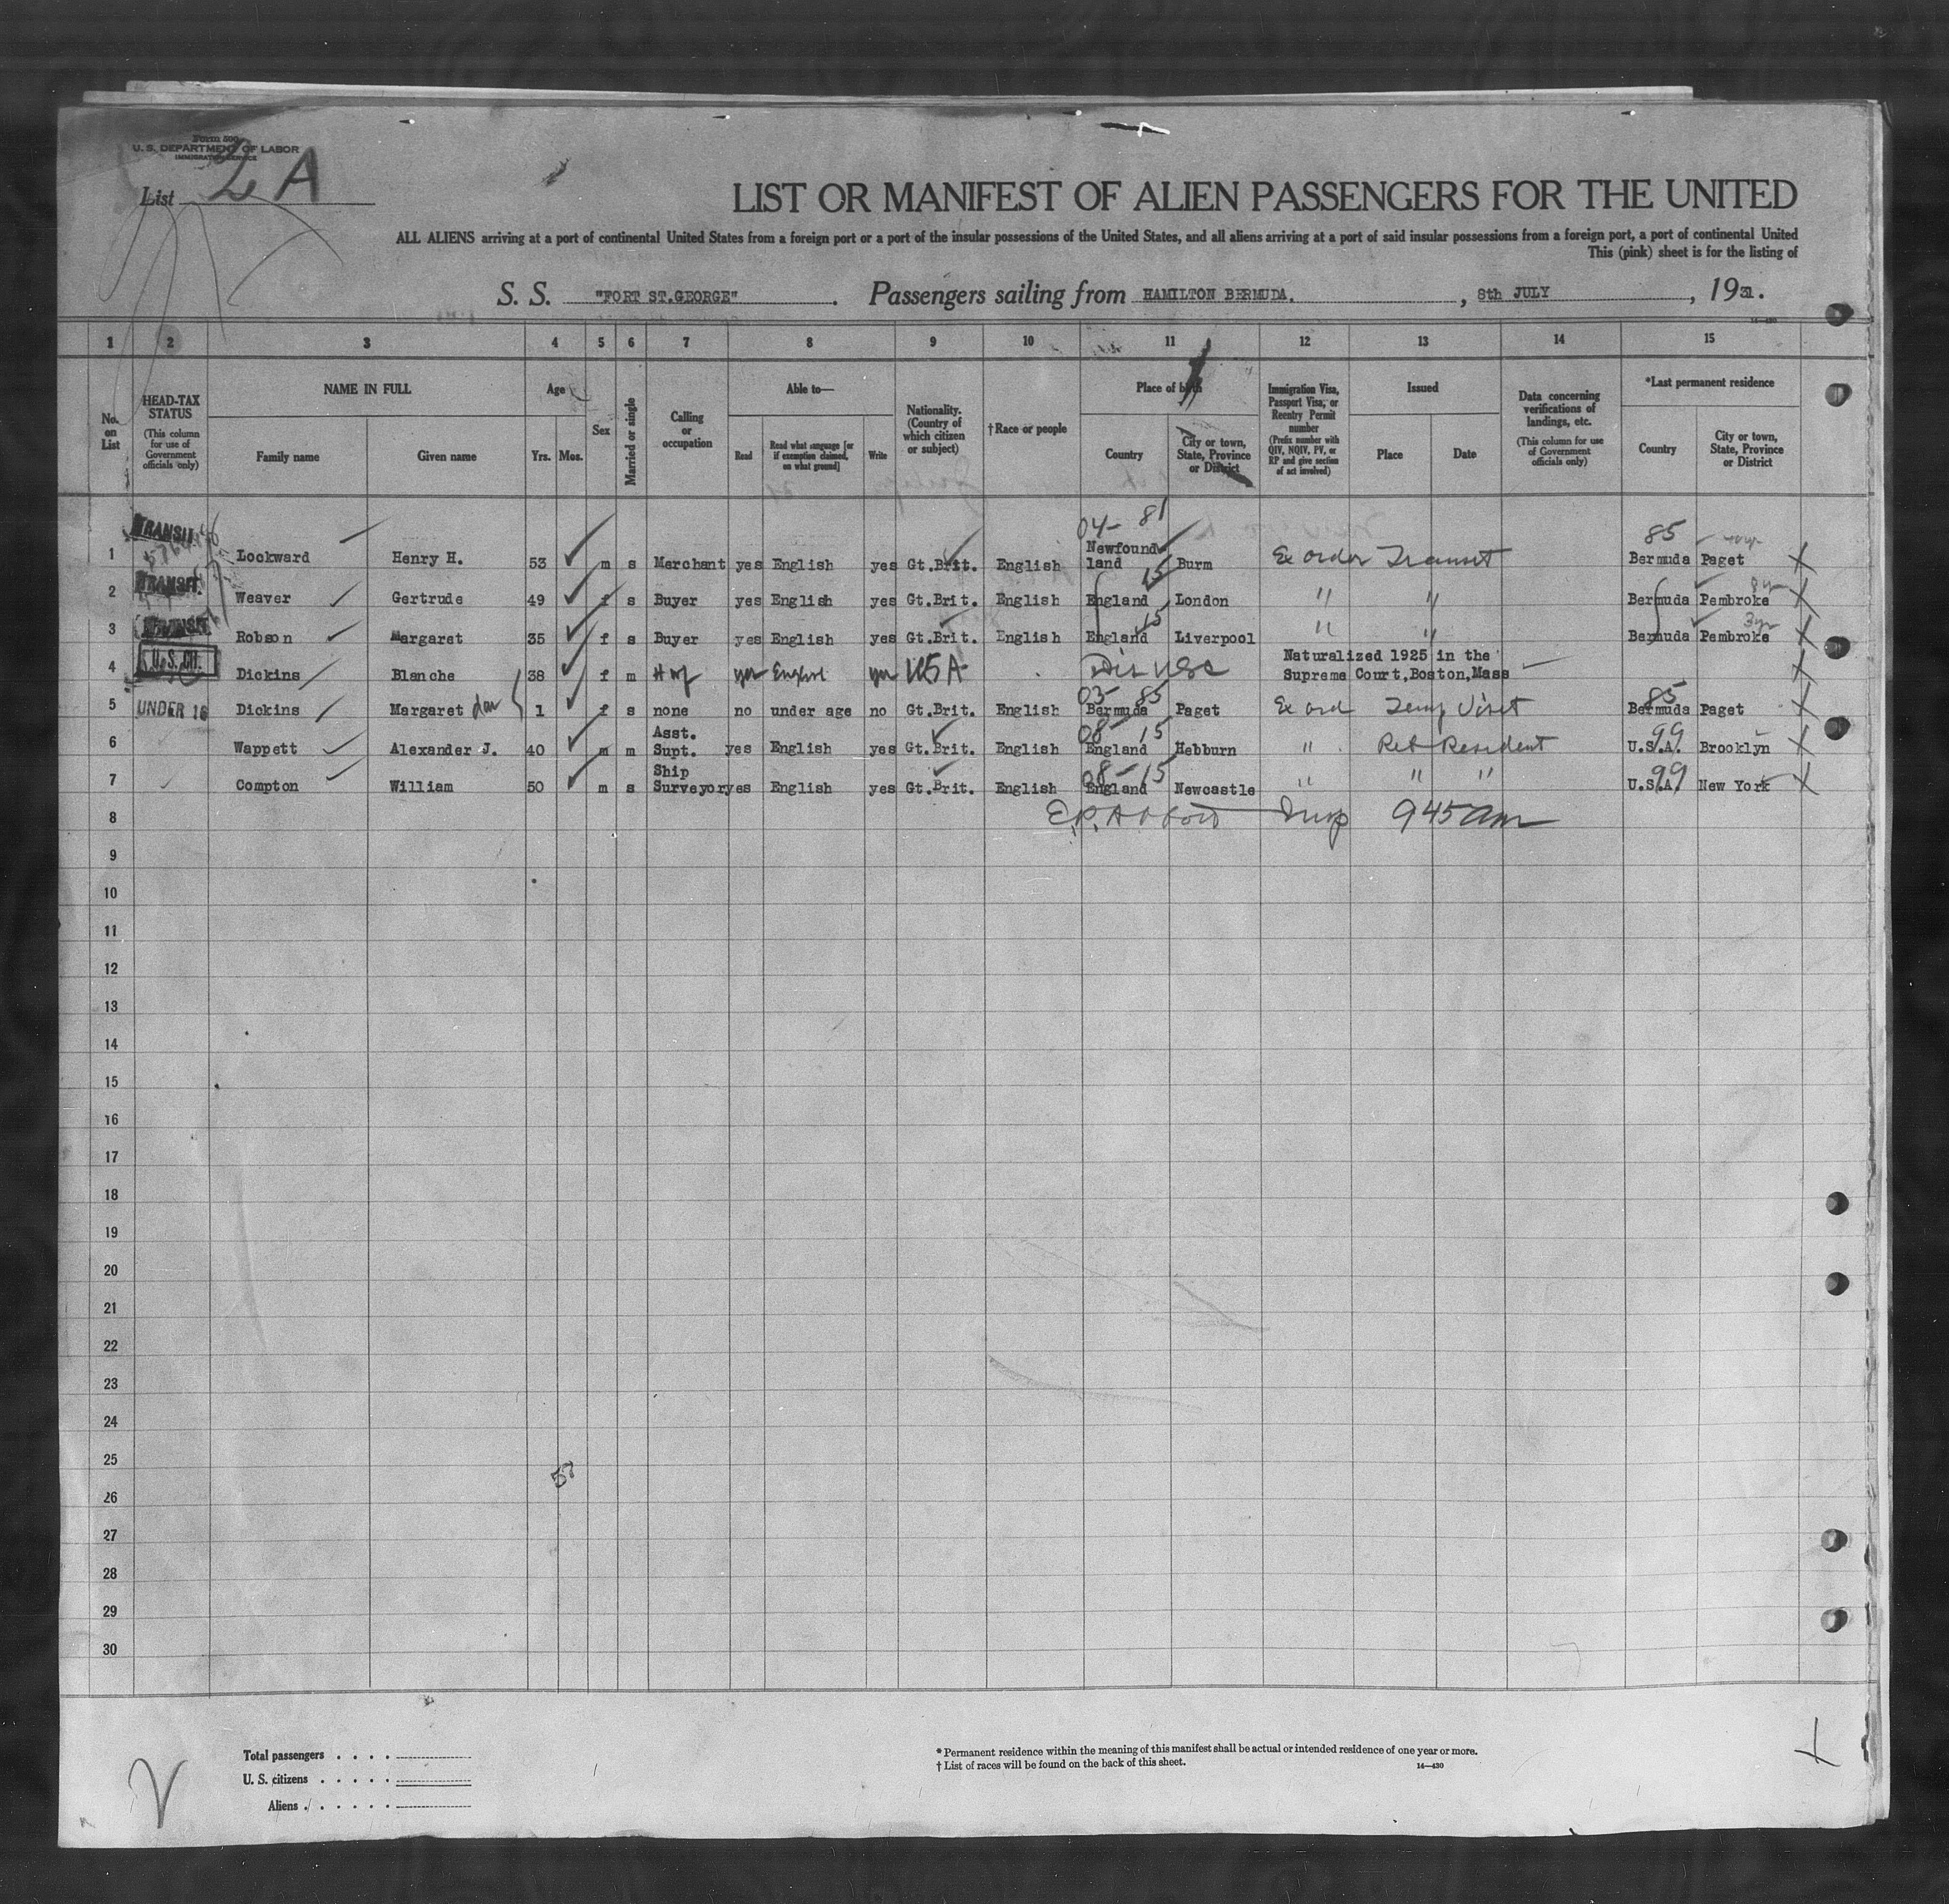 Form 500
U. S. DEPARTMENT OF LABOR
IMMIGRATION SERVICE
List 2 A
LIST OR MANIFEST OF ALIEN PASSENGERS FOR THE UNITED
ALL ALIENS arriving at a port of continental United States from a foreign port or a port of the insular possessions of the United States, and all aliens arriving at a port of said insular possessions from a foreign port, a port of continental United
This (pink) sheet is for the listing of
S. S. "FORT ST.GEORGE" . Passengers sailing from HAMILTON BERMUDA. , 8th JULY , 1931.
1 2 3 4 5 6 7 8 9 10 11 12 13 14 15
No. on List
HEAD-TAX STATUS (This column for use of Government officials only)
NAME IN FULL
Family name Given name
Age
Yrs. Mos.
Sex
Married or single
Calling or occupation
Able to—
Read Read what language [or if exemption claimed, on what ground] Write
Nationality. (Country of which citizen or subject)
†Race or people
Place of birth
Country City or town, State, Province or District
Immigration Visa, Passport Visa, or Reentry Permit number (Prefix number with QIV, NQIV, PV, or RP and give section of act involved)
Issued
Place Date
Data concerning verifications of landings, etc. (This column for use of Government officials only)
*Last permanent residence
Country City or town, State, Province or District
04- 81 85
1 TRANSIT Lockward Henry H. 53 m s Merchant yes English yes Gt.Brit. English Newfoundland Burm Ex order Transit Bermuda Paget
15 8yr
2 TRANSIT Weaver Gertrude 49 f s Buyer yes English yes Gt.Brit. English England London " " Bermuda Pembroke
15 3yr
3 TRANSIT Robson Margaret 35 f s Buyer yes English yes Gt.Brit. English England Liverpool " " Bermuda Pembroke
4 U.S. CIT. Dickins Blanche 38 f m yes English yes USA Naturalized 1925 in the Supreme Court,Boston,Mass
03- 85 85
5 UNDER 16 Dickins Margaret dau 1 f s none no under age no Gt.Brit. English Bermuda Paget Ex ord Temp Visit Bermuda Paget
08- 15 99
6 Wappett Alexander J. 40 m m Asst. Supt. yes English yes Gt.Brit. English England Hebburn " Ret Resident U.S.A. Brooklyn
08-15 99
7 Compton William 50 m s Ship Surveyor yes English yes Gt.Brit. English England Newcastle " " " U.S.A. New York
8 Insp 945am
9
10
11
12
13
14
15
16
17
18
19
20
21
22
23
24
25
26
27
28
29
30
Total passengers . . . .
U. S. citizens . . . . .
Aliens . . . . . .
* Permanent residence within the meaning of this manifest shall be actual or intended residence of one year or more.
† List of races will be found on the back of this sheet.
14—430